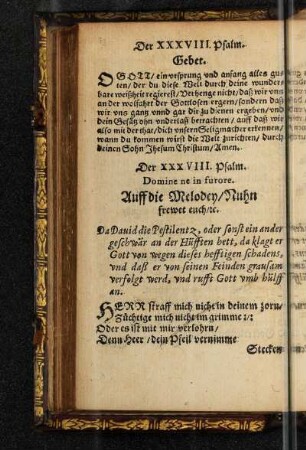 Der XXXVIII. Psalm.
Gebet.
O GOTT / ein vrsprung vnd anfang alles gu-
ten / der du diese Welt durch deine wunder-
bare weißheit regierest / Verhenge nicht / daß wir vns
an der wolfahrt der Gottlosen ergern / sondern daß
wir vns gantz vnnd gar dir zu dienen ergeben / vnd
dein Gesätz ohn vnderlaß betrachten / auff daß wir
also mit der that / dich vnsern Seligmacher erkennen /
wann du kommen wirst die Welt zurichten / durch
deinen Sohn Jhesum Christum / Amen.
Der XXXVIII. Psalm.
Domine ne in furore.
Auff die Melodey / Nuhn
frewet euch / ꝛc.
Da Dauid die Pestilentz, oder sonst ein ander
geschwär an der Hüfften hett, da klagt er
Gott von wegen dieses hefftigen schadens,
vnd daß er von seinen Feinden grausam
verfolgt werd, vnd rufft Gott vmb hülff
an.
HERR straff mich nicht in deinem zorn /
Züchtige mich nicht im grimme /
Oder es ist mit mir verlohrn /
Denn Heer / dein Pfeil vernimme
Stecken